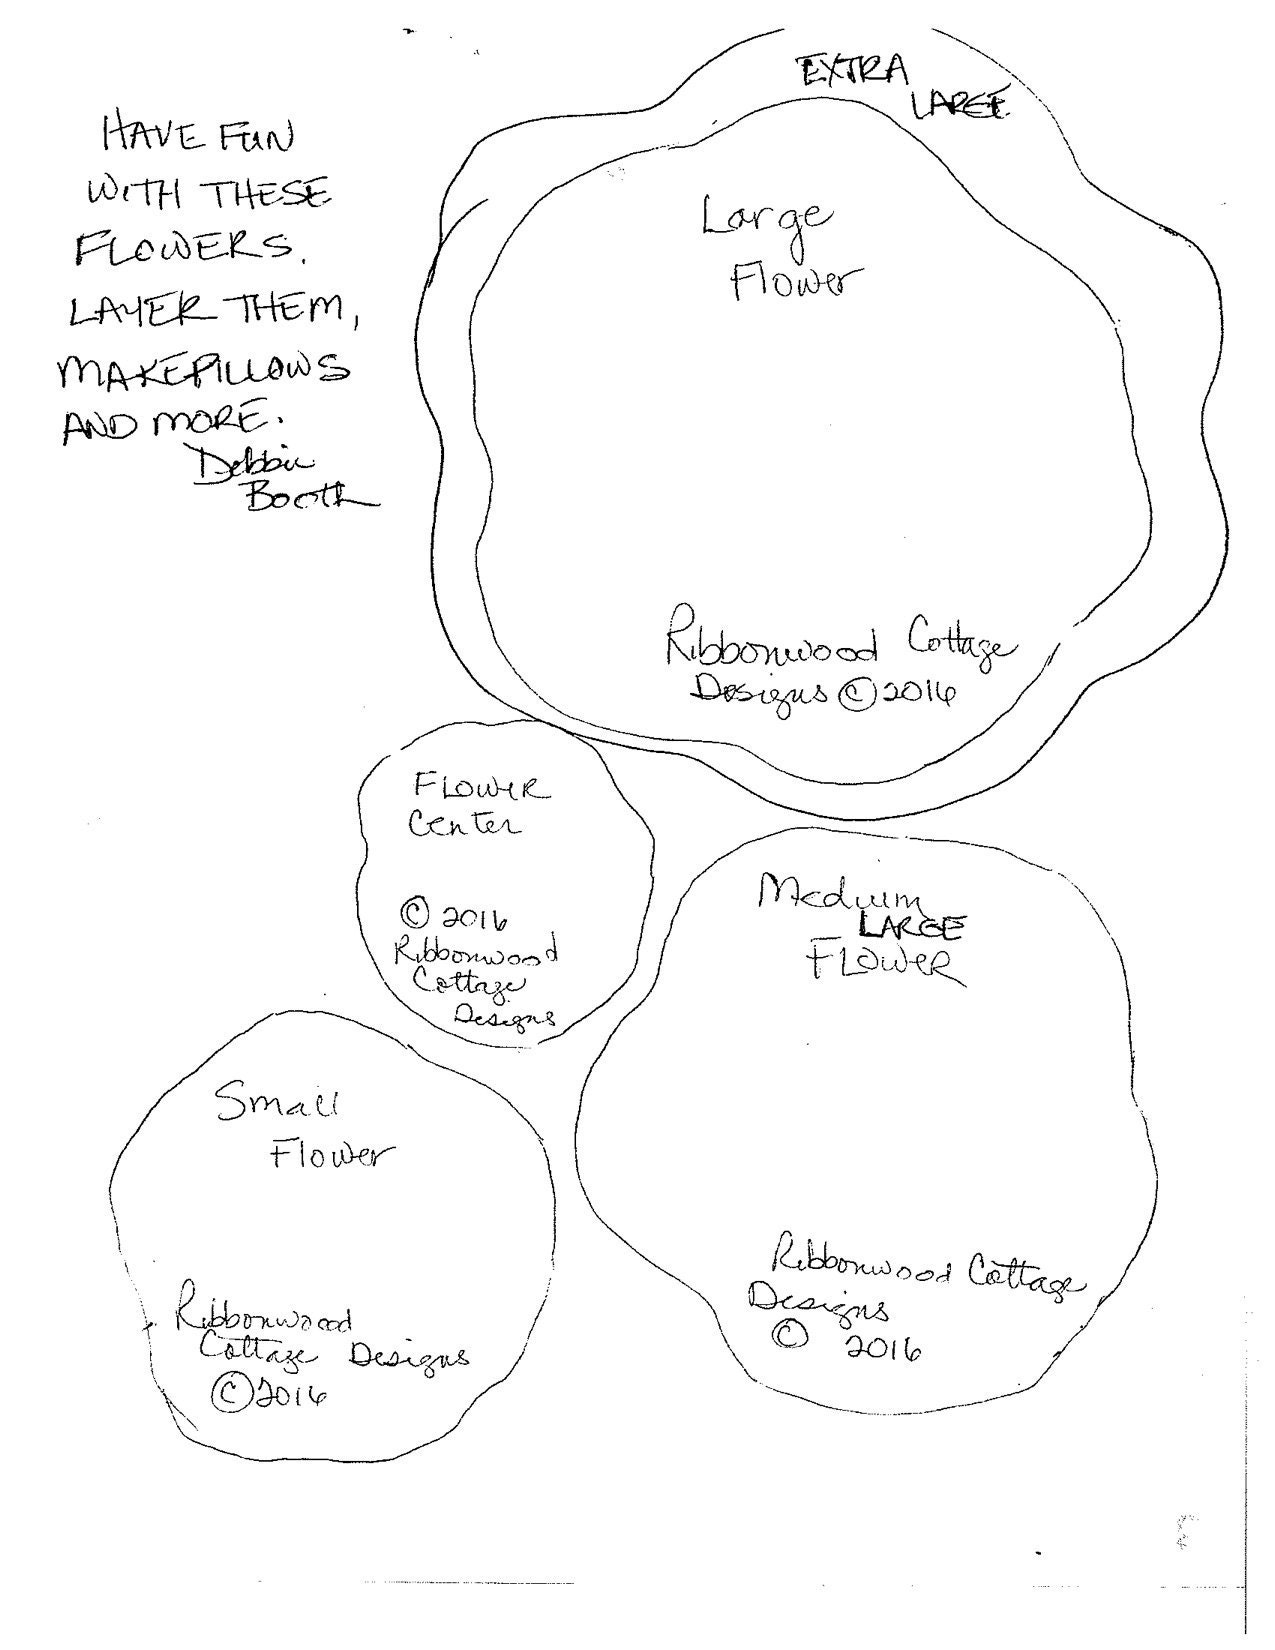 HAVE FUN
WITH THESE
FLOWERS.
LAYER THEM,
MAKE PILLOWS
AND MORE.
Debbie
Booth
EXTRA
LARGE
Large
Flower
Ribbonwood Cottage
Designs © 2016
FLOWER
Center
© 2016
Ribbonwood
Cottage
Designs
Medium
LARGE
FLOWER
Ribbonwood Cottage
Designs
© 2016
Small
Flower
Ribbonwood
Cottage Designs
© 2016